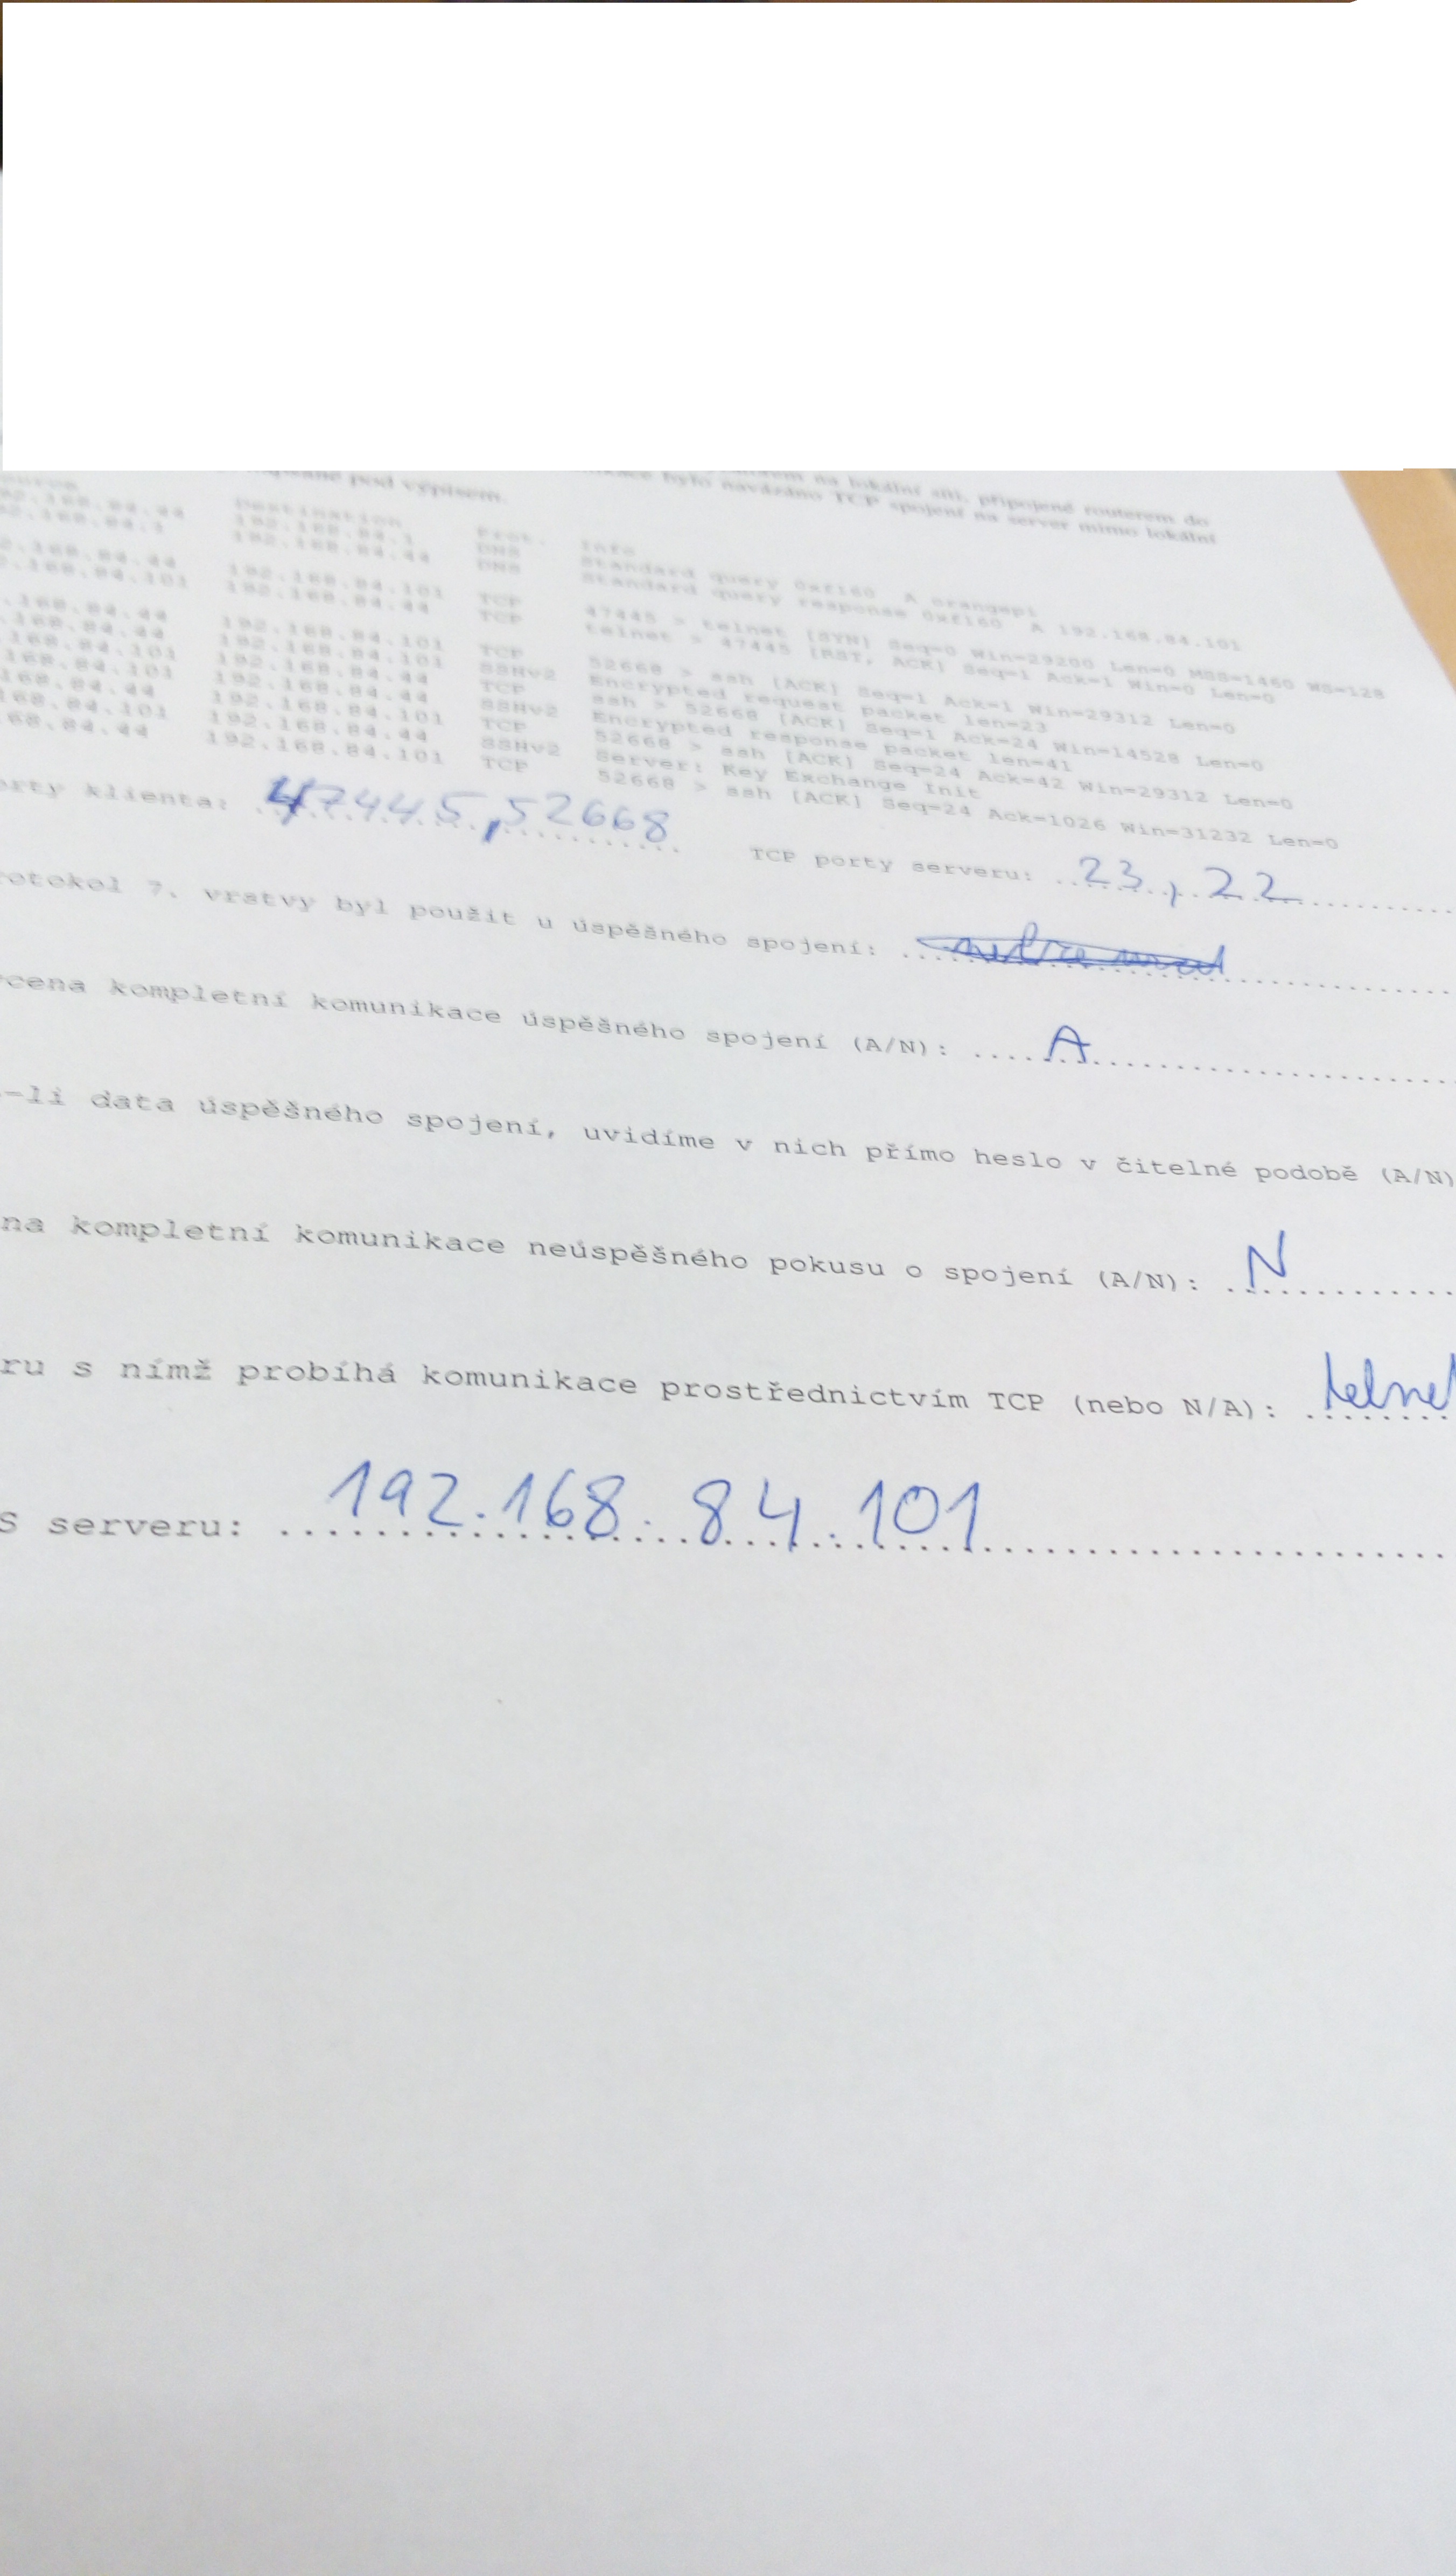 na lokální síti, připojené routerem do
bylo navázáno TCP spojení na server mimo lokální
pod výpisem.
Destination Prot. Info
192.168.84.44 192.168.84.1 DNS Standard query 0xf160 A orangepi
192.168.84.1 192.168.84.44 DNS Standard query response 0xf160 A 192.168.84.101
.168.84.44 192.168.84.101 TCP 47445 > telnet [SYN] Seq=0 Win=29200 Len=0 MSS=1460 WS=128
.168.84.101 192.168.84.44 TCP telnet > 47445 [RST, ACK] Seq=1 Ack=1 Win=0 Len=0
.168.84.44 192.168.84.101 TCP 52668 > ssh [ACK] Seq=1 Ack=1 Win=29312 Len=0
.168.84.44 192.168.84.101 SSHv2 Encrypted request packet len=23
168.84.101 192.168.84.44 TCP ssh > 52668 [ACK] Seq=1 Ack=24 Win=14528 Len=0
168.84.101 192.168.84.44 SSHv2 Encrypted response packet len=41
168.84.44 192.168.84.101 TCP 52668 > ssh [ACK] Seq=24 Ack=42 Win=29312 Len=0
168.84.101 192.168.84.44 SSHv2 Server: Key Exchange Init
68.84.44 192.168.84.101 TCP 52668 > ssh [ACK] Seq=24 Ack=1026 Win=31232 Len=0
orty klienta: 47445,52668 TCP porty serveru: 23, 22
rotokol 7. vrstvy byl použit u úspěšného spojení:
cena kompletní komunikace úspěšného spojení (A/N): A
-li data úspěšného spojení, uvidíme v nich přímo heslo v čitelné podobě (A/N)
na kompletní komunikace neúspěšného pokusu o spojení (A/N): N
ru s nímž probíhá komunikace prostřednictvím TCP (nebo N/A): telnet
S serveru: 192.168.84.101